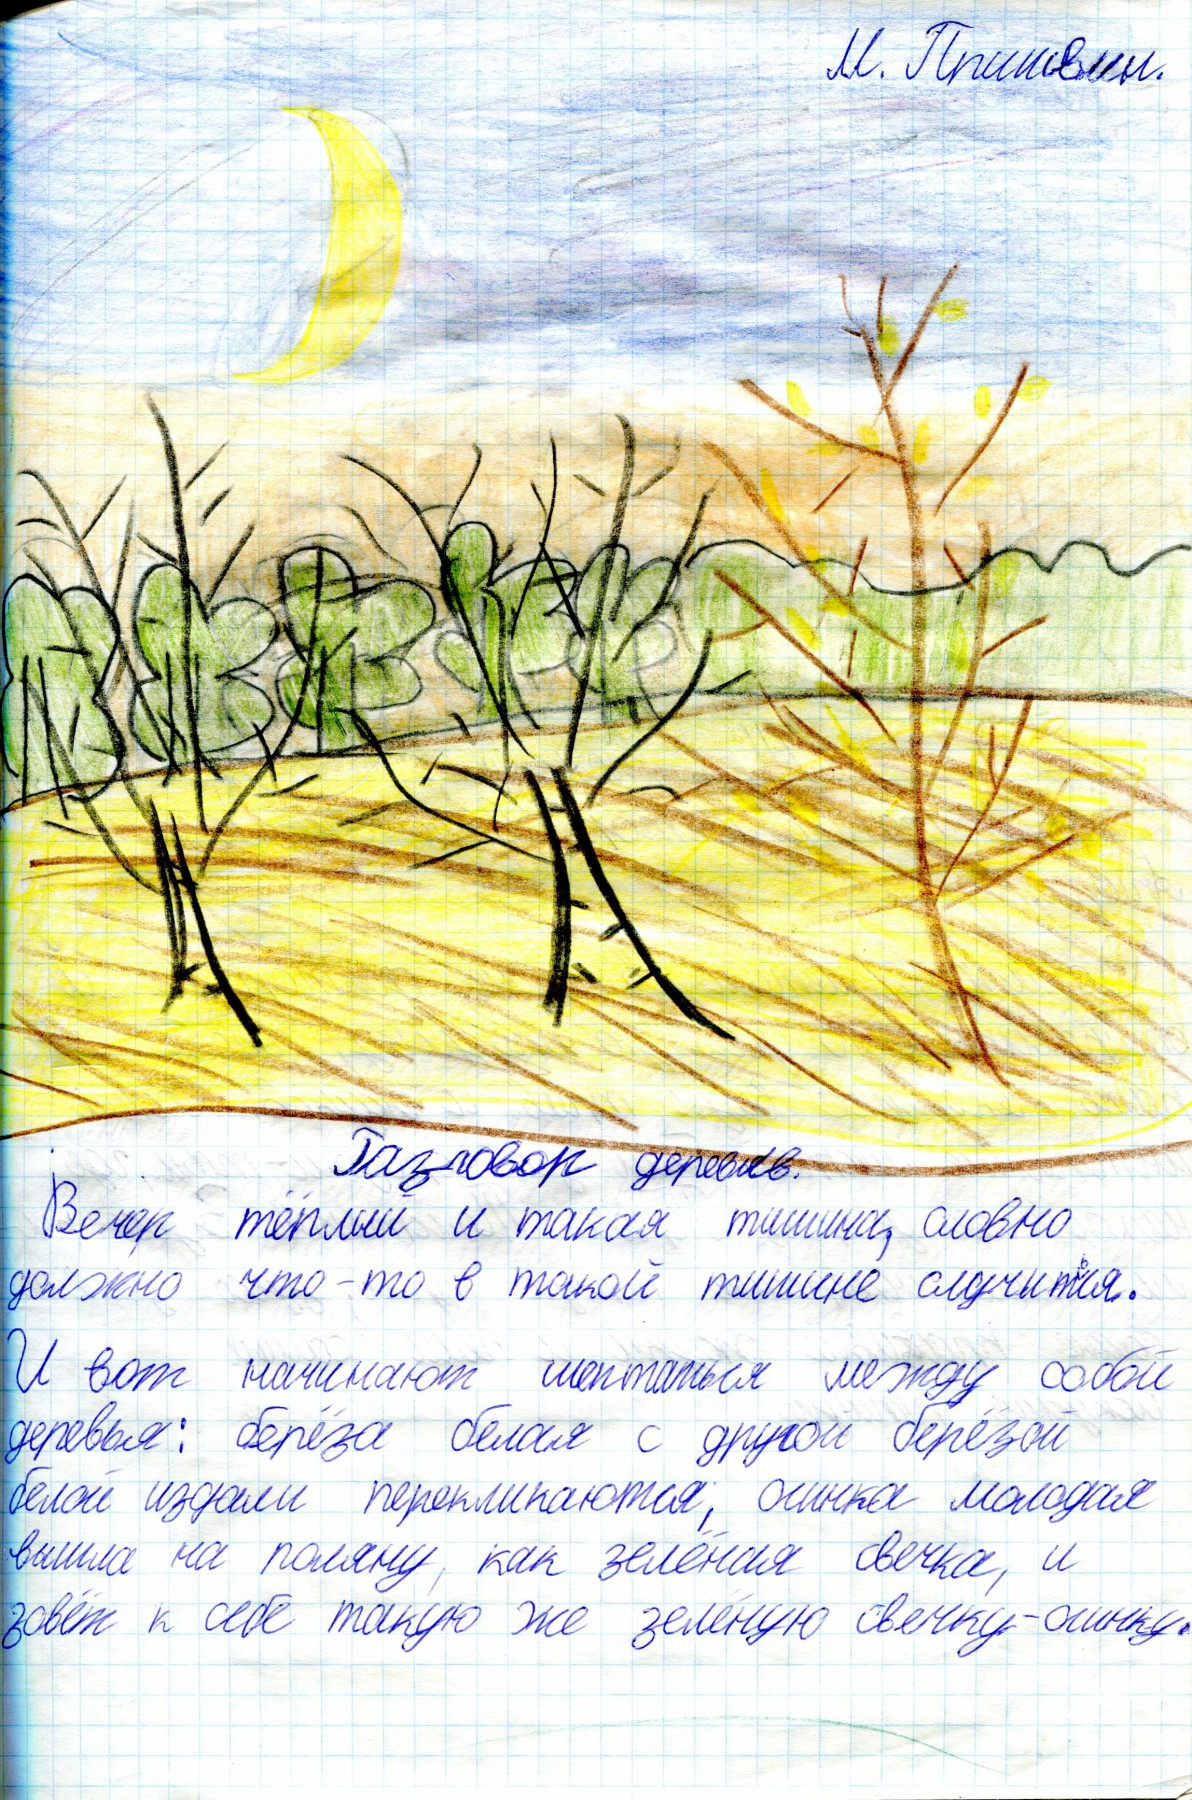 М. Пришвин.
Разговор деревьев.
Вечер тёплый и такая тишина, словно
должно что-то в такой тишине случиться.
И вот начинают шептаться между собой
деревья: берёза белая с другой берёзой
белой издали перекликаются, осинка молодая
вышла на поляну, как зелёная свечка, и
зовёт к себе такую же зелёную свечку-осинку.